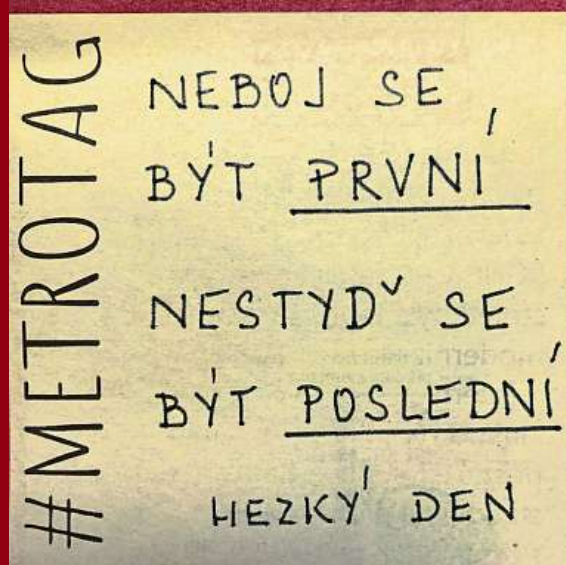 #METROTAG
NEBOJ SE
BÝT PRVNÍ
NESTYDˇ SE
BÝT POSLEDNÍ
HEZKÝ DEN